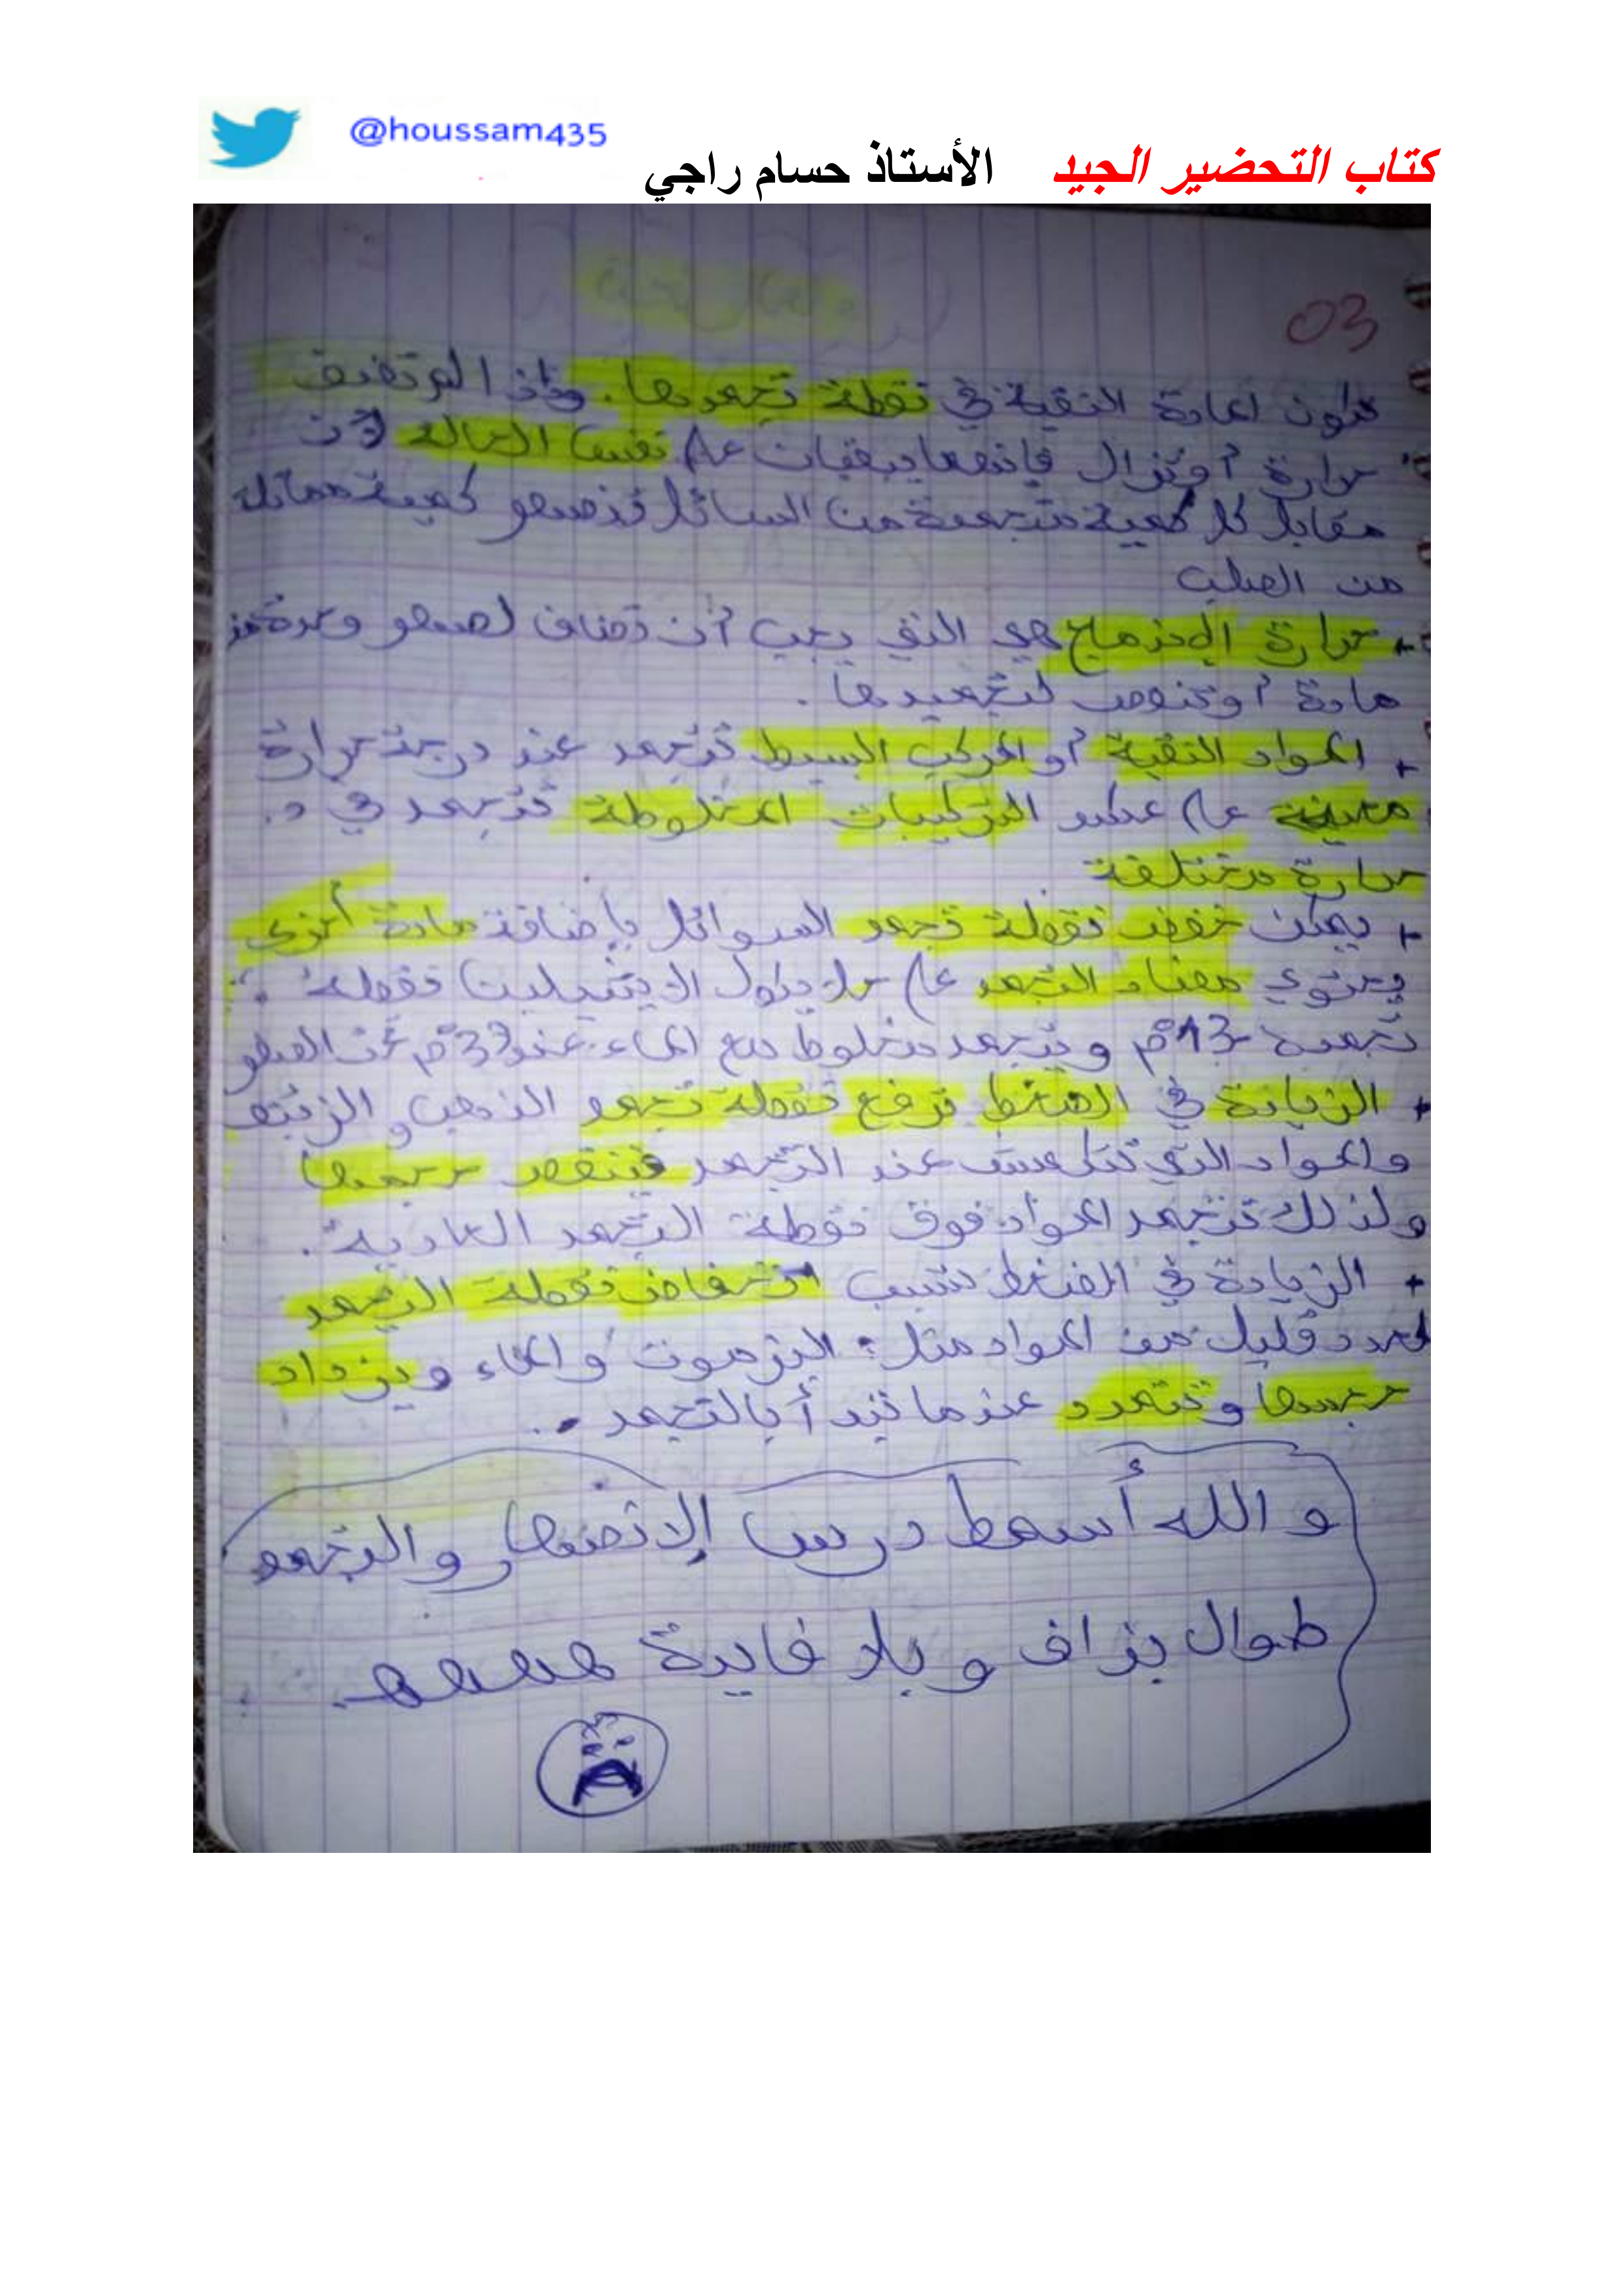 @houssam435
كتاب التحضير الجيد الأستاذ حسام راجي
03
المادة النقية في نقطة تجمدها. وإذا لم تضف
حرارة أو تزال فإنهما يبقيان على نفس الحالة لأن
مقابل كل كمية متجمدة من السائل تنصهر كمية مماثلة
من الصلب
+ حرارة الإندماج هي التي يجب أن تضاف لصهر وحدة من
مادة أو تنزع لتجميدها.
+ المواد النقية أو المركب البسيط تتجمد عند درجة حرارة
معينة على عكس التركيبات المخلوطة تتجمد في د.
حرارة مختلفة
+ يمكن خفض نقطة تجمد السوائل بإضافة مادة أخرى
ويحتوي مضاد التجمد على جلايكول الإيثيلين نقطة
تجمده -13°م ويتجمد مخلوط مع الماء عند 37°م تحت الصفر
+ الزيادة في الضغط ترفع نقطة تجمد الذهب و الزئبق
والمواد التي تنكمش عند التجمد فينقص حجمها
ولذلك تتجمد المواد فوق نقطة التجمد العادية.
+ الزيادة في الضغط تسبب انخفاض نقطة التجمد
لعدد قليل من المواد مثل: البزموت والماء ويزداد
حجمها وتتمدد عندما تبدأ بالتجمد..
و الله أسمط درس الإنصهار والتجمد
طوال بزاف و بلا فايدة